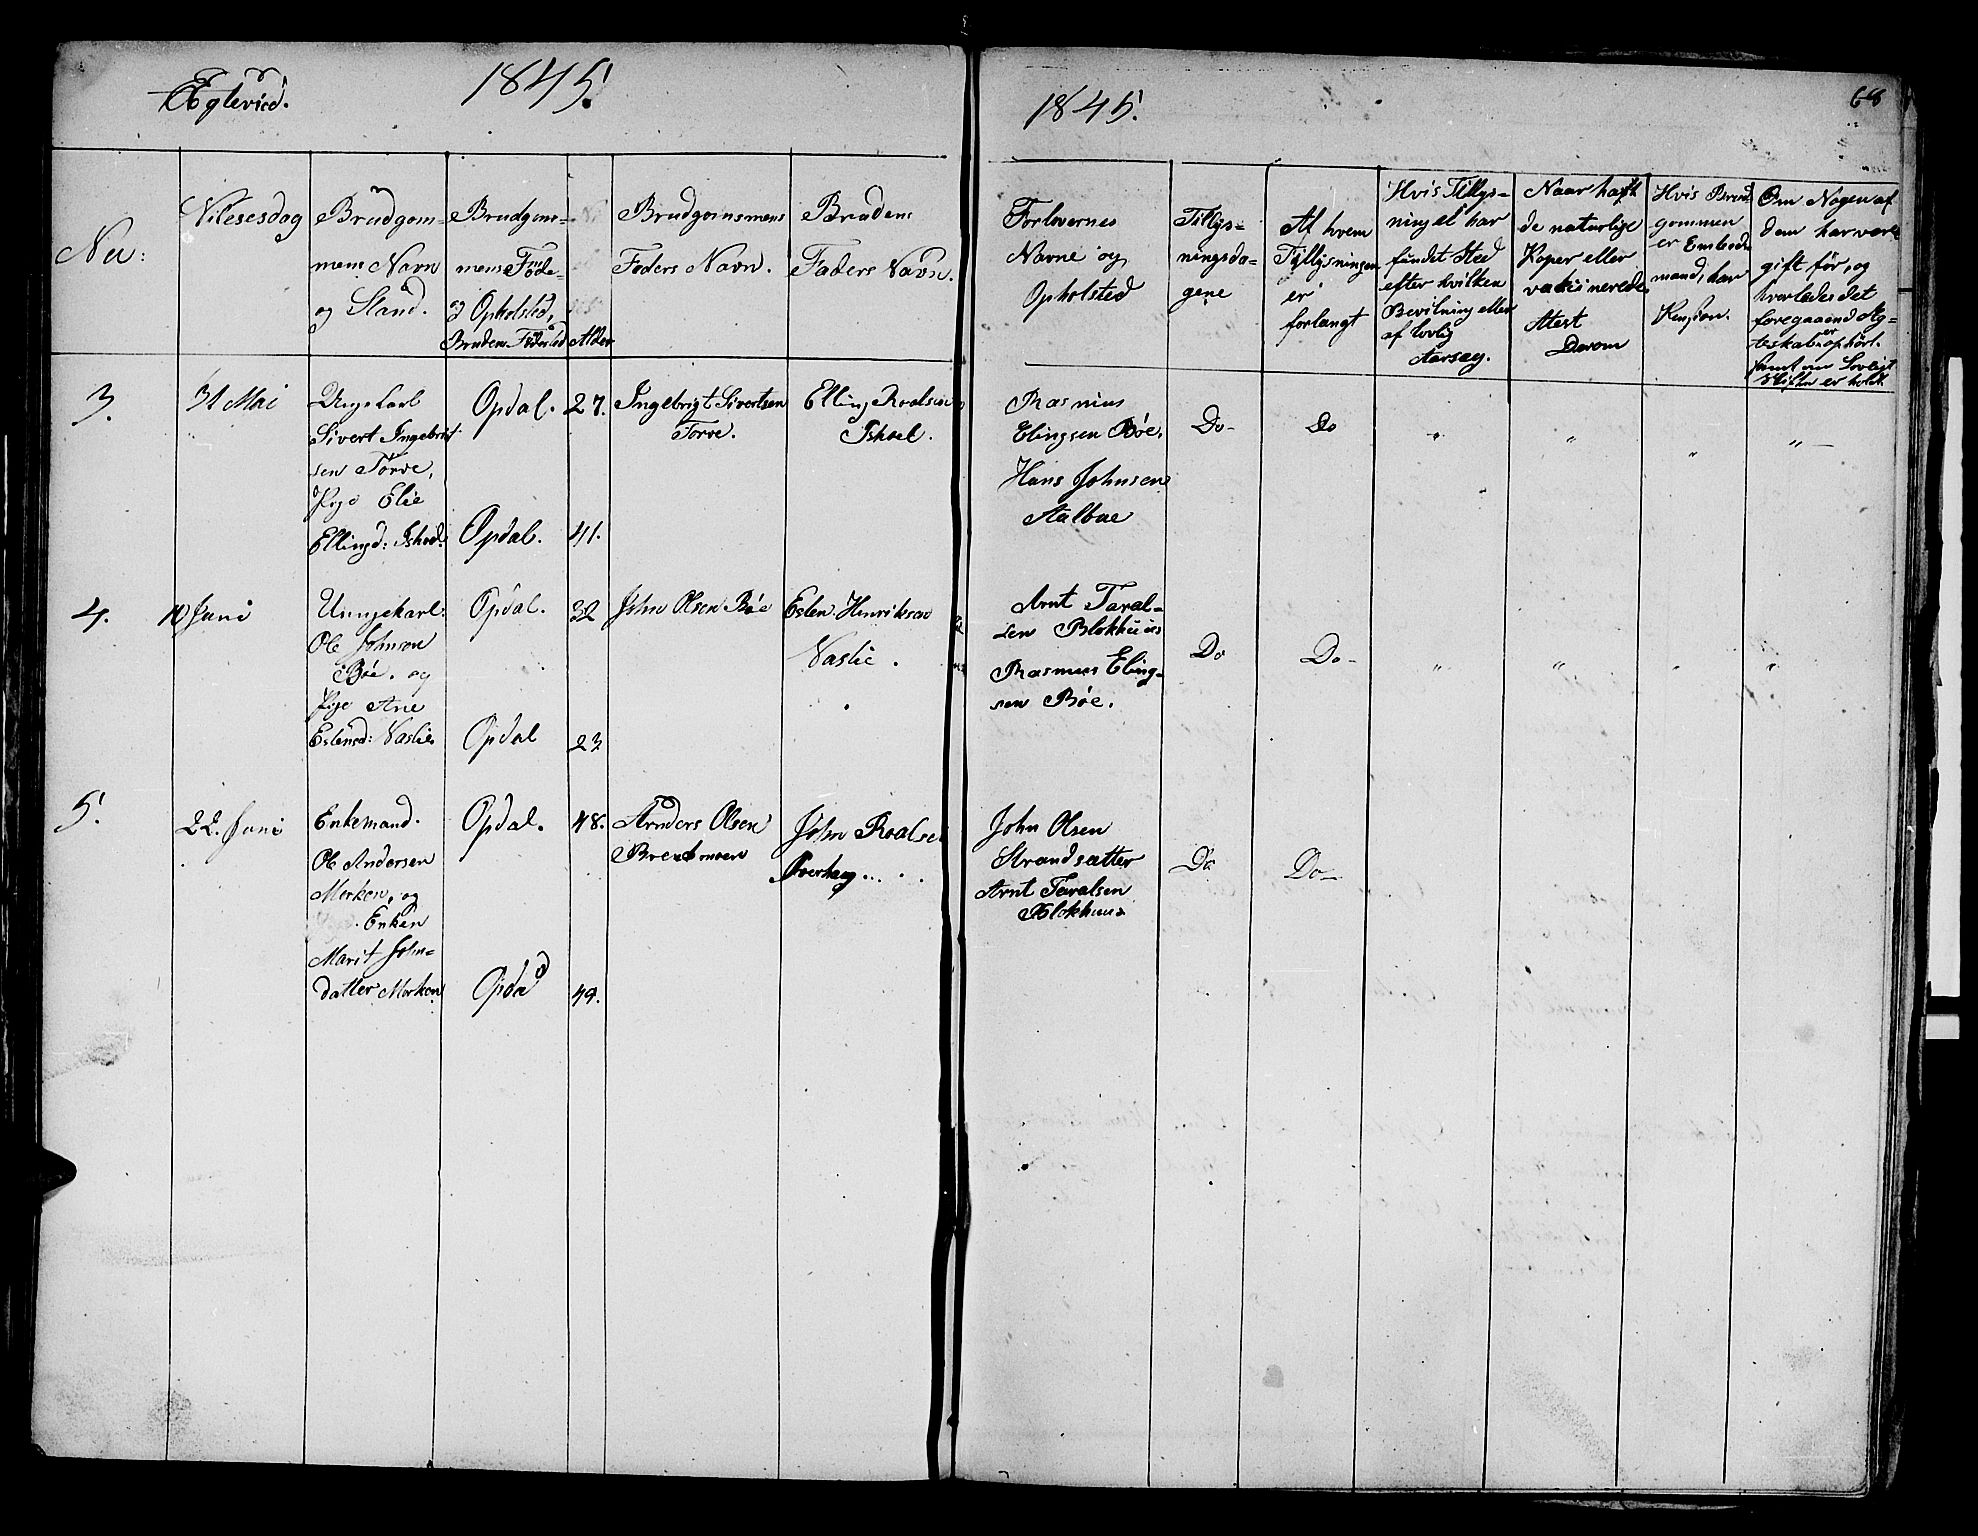 Egtevied.
1845.
1845.
68
No:
Vilsesdag
Brudgom-
mens Navn
og Stand.
Brudgom-
mens Føde-
og Opholsted,
Brudens Fødested
Alder
Brudgomsmens
Faders Navn.
Brudens
Faders Navn.
Forlovernes
Navne og
Opholsted
Tillys-
ningsda-
gene
Af hvem
Tillysningen
er
forlangt
Hvis Tillys-
ning ei har
fundet Sted
efter hvilken
Bevilning eller
af lovlig
Aarsag.
Naar havt
de naturlige
Koper eller
vakcinerede
Atest
Derom
Hvis Brud
gommen
er Embeds
mand, har
Pension.
Om Nogen af
dem har være
gift før, og
hvorledes det
foregaaend Æg-
teskab er ophört.
samt om Lovligt
Skifte er holdt.
3.
31 Mai
Ungekarl
Sivert Ingebrigt
sen Torve,
Pige Elie
Ellingd: Ishoel.
Opdal.
Opdal.
27.
41.
Ingebrigt Sivertsen
Torve.
Elling Roalsen
Ishoel.
Rasmus
Elingsen Bøe,
Hans Johnsen
Aalbue
Do-
Do
"
"
"
" -
4.
10 Juni
Unngekarl.
Ole Johnson
Bøe. og
Pige Ane
Eslensd: Vaslie
Opdal.
Opdal
32
23
John Olsen Bøe
Eslen Henriksen
Vaslie.
Arnt Taral-
sen Blokhuus
Rasmus Eling-
sen Bøe.
Do
Do-
"
"
"
"
5.
22. Juni
Enkemand.
Ole Andersen
Morken, og
Enken
Marit John-
datter Morken
Opdal.
Opdal
48.
49.
Arnders Olsen
John Roalsen
Øverhaug
John Olsen
Strandsætter
Arnt Taralsen
Blokhuus
Do
Do-